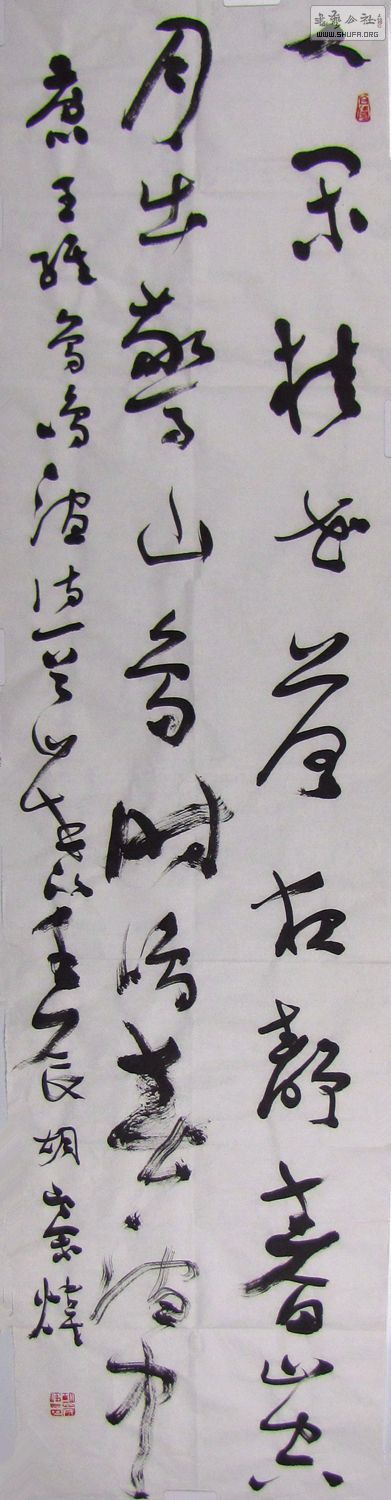 人闲桂花落夜静春山空
月出惊山鸟时鸣春涧中
录王维鸟鸣涧诗一首 壬辰 胡崇炜
书艺公社
WWW.SHUFA.ORG